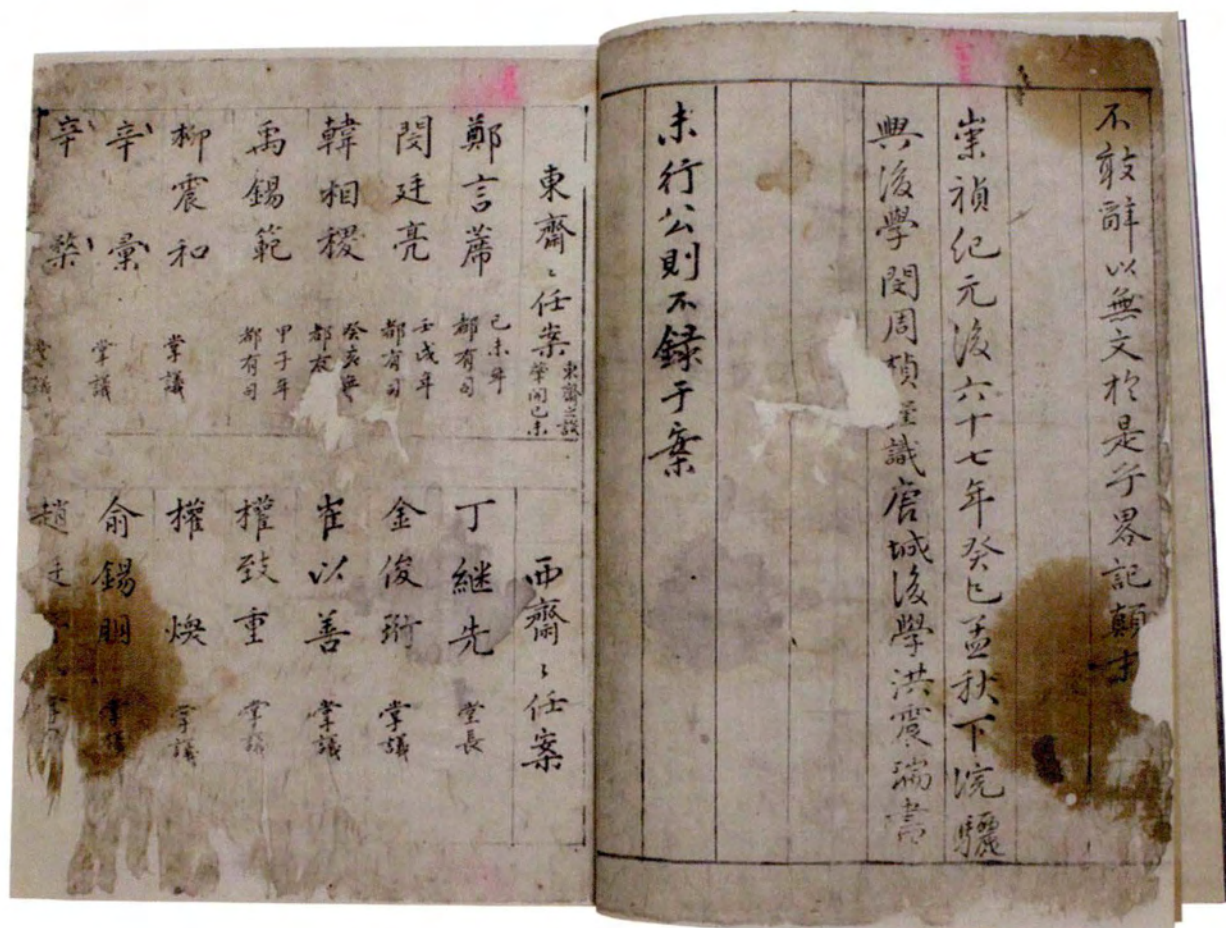 不敢辭以無文於是乎畧記顛末
崇禎紀元後六十七年癸巳孟秋下浣驪
興後學閔周楨謹識唐城後學洪震瑞書
未行公則不錄于案
東齋〻任案 東齋之設 肇開已未
鄭言蓆 已未年 都有司
閔廷亮 壬戌年 都有司
韓相稷 癸亥年 都有
禹錫範 甲子年 都有司
柳震和 掌議
辛彙 掌議
辛 議
西齋〻任案
丁繼先 堂長
金俊珩 掌議
崔以善 掌議
權致重 掌議
權煥 掌議
俞錫胤 掌議
趙廷 掌